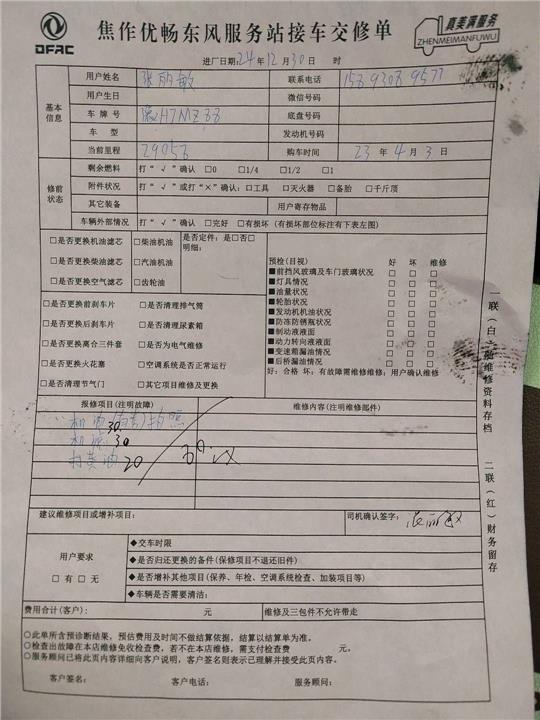 DFAC
焦作优畅东风服务站接车交修单
真美满服务
ZHENMEIMANFUWU
进厂日期:24年12月30日 时
基本信息
用户姓名 张丽敏 联系电话
用户生日 微信号码
车牌号 豫H7MZ88 底盘号码
车型 发动机号码
当前里程 29058 购车时间 23年4月3日
修前状态
剩余燃料 打“√”确认 □0 □1/4 □1/2 □1
附件状况 打“√”或打“×”确认: □工具 □灭火器 □备胎 □千斤顶
其它装备 用户寄存物品
车辆外部情况 打“√”确认 □完好 □有损坏 (有损坏部位标注有下表左图)
□是否更换机油滤芯 □柴油机油 是否定件: 是□否□
明细:
□是否更换柴油滤芯 □汽油机油
□是否更换空气滤芯 □齿轮油
□是否更换前刹车片 □是否清理排气筒
□是否更换后刹车片 □是否清理尿素箱
□是否更换离合三件套 □是否为电气维修
□是否更换火花塞 □空调系统是否正常运行
□是否清理节气门 □其它项目维修及更换
预检(目视) 好 坏 维修
■前挡风玻璃及车门玻璃状况 □ □ □
■灯具情况 □ □ □
■油量状况 □ □ □
■轮胎状况 □ □ □
■发动机机油状况 □ □ □
■防冻防锈瓶状况 □ □ □
■制动液液面 □ □ □
■动力转向液液面 □ □ □
■变速箱漏油情况 □ □ □
■后桥漏油情况 □ □ □
好: 合格 坏: 有故障需维修维修: 用户确认维修
报修项目(注明故障) 维修内容(注明维修部件)
机 30 拍照
机 30
打黄油 20
建议维修项目或增补项目: 司机确认签字: 张丽敏
用户要求
□有 □无
◆交车时限
◆是否归还更换的备件(保修项目不退还旧件)
◆是否增补其他项目(保养、年检、空调系统检查、加装项目等)
◆车辆是否需要清洁:
费用合计(客户): 元 维修及三包件不允许带走
○此单所含预诊断结果, 预估费用及时间不做结算依据, 结算以结算单为准。
○检查出故障在本店维修免收检查费, 若不在本店维修, 需支付检查费 元。
○服务顾问已将此页内容详细向客户说明, 客户签名则表示已理解并接受此页内容。
客户签名: 客户电话: 服务顾问:
一联(白) 维修资料存档
二联(红) 财务留存